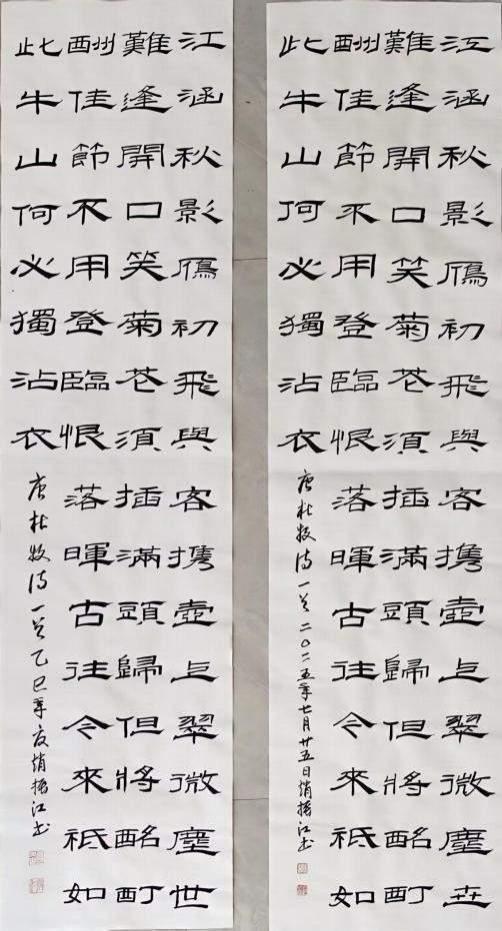 江涵秋影鴈初飛與客携壺上翠微塵世
難逢開口笑菊花須插滿頭歸但將酩酊
酬佳節不用登臨恨落暉古往今來祇如
此牛山何必獨沾衣
唐杜牧詩一首二〇二五年七月廿五日趙振江書
江涵秋影鴈初飛與客携壺上翠微塵世
難逢開口笑菊花須插滿頭歸但將酩酊
酬佳節不用登臨恨落暉古往今來祇如
此牛山何必獨沾衣
唐杜牧詩一首乙巳年夏趙振江書